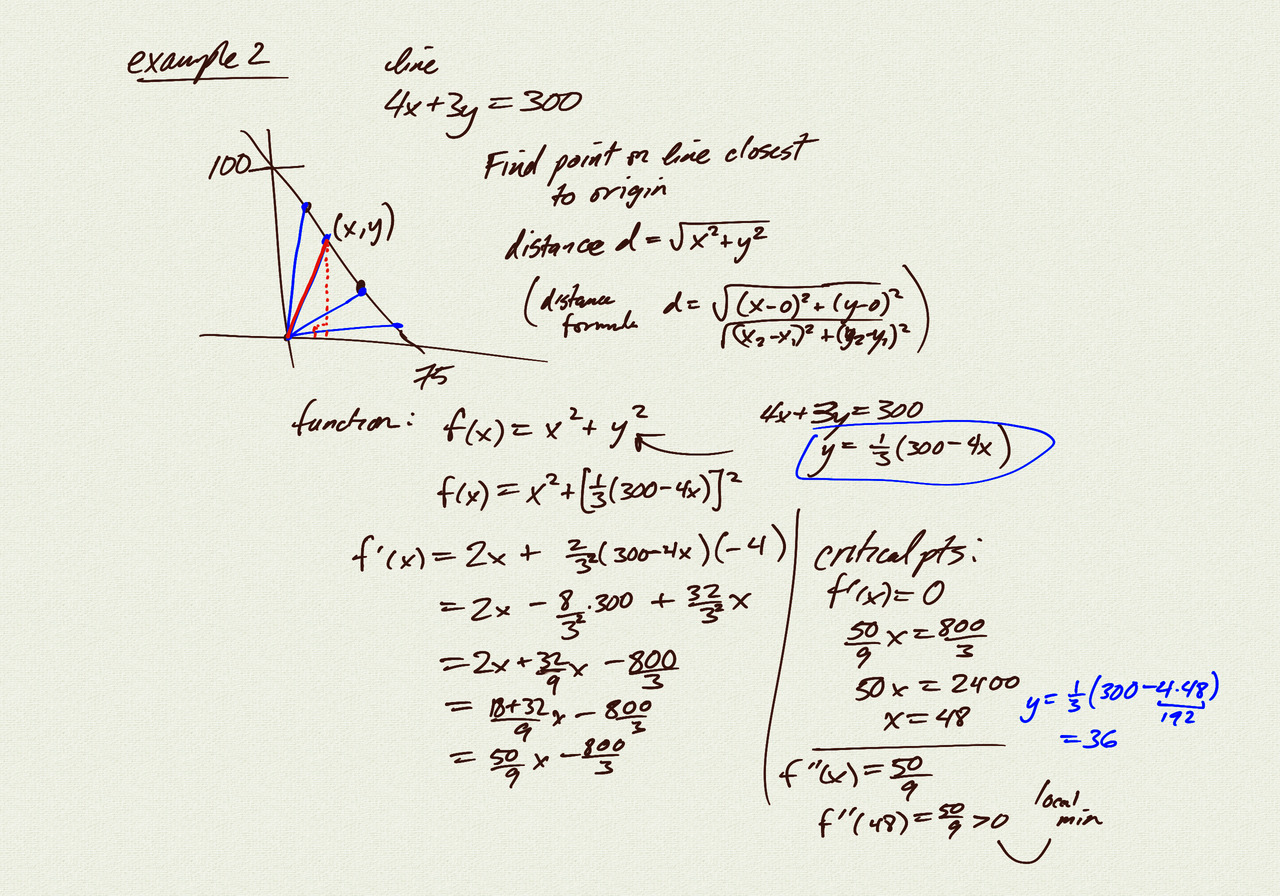 example 2
line
4x+3y = 300
100
(x,y)
75
Find point on line closest
to origin
distance d = √(x²+y²)
(distance formula d = √((x-0)²+(y-0)²)
√((x₂-x₁)²+(y₂-y₁)²))
function: f(x) = x²+y²
4x+3y=300
y = 1/3(300-4x)
f(x) = x²+[1/3(300-4x)]²
f'(x) = 2x + 2/3²(300-4x)(-4)
= 2x - 8/3²·300 + 32/3² x
= 2x+32/9 x - 800/3
= 18+32/9 x - 800/3
= 50/9 x - 800/3
critical pts:
f'(x)=0
50/9 x = 800/3
50x = 2400
x = 48
y = 1/3(300-4·48)
192
= 36
f''(x) = 50/9
f''(48) = 50/9 >0
local
min